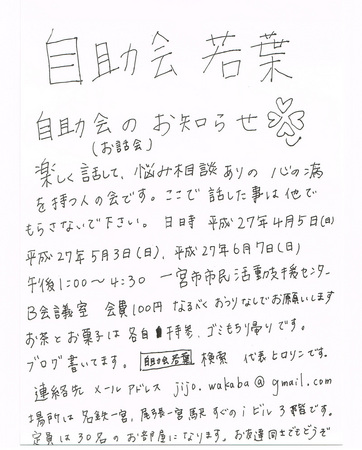 自助会 若葉
自助会の お知らせ
(お話会)
楽しく話して、悩み相談ありの 心の病
を持つ人の会です。ここで話した事は他で
もらさないで下さい。 日時 平成27年4月5日(日)
平成27年5月3日(日)、平成27年6月7日(日)
午後1:00〜4:30 一宮市市民活動支援センター
B会議室 会費100円 なるべく おつりなしでお願いします
お茶とお菓子は各自持参、ゴミもち帰りです。
ブログ書いてます。 自助会若葉 検索 代表ヒロリンです。
連絡先 メールアドレス jijo.wakaba@gmail.com
場所は 名鉄一宮、尾張一宮駅 すぐのiビル3階です。
定員は30名のお部屋になります。お友達同士でもどうぞ